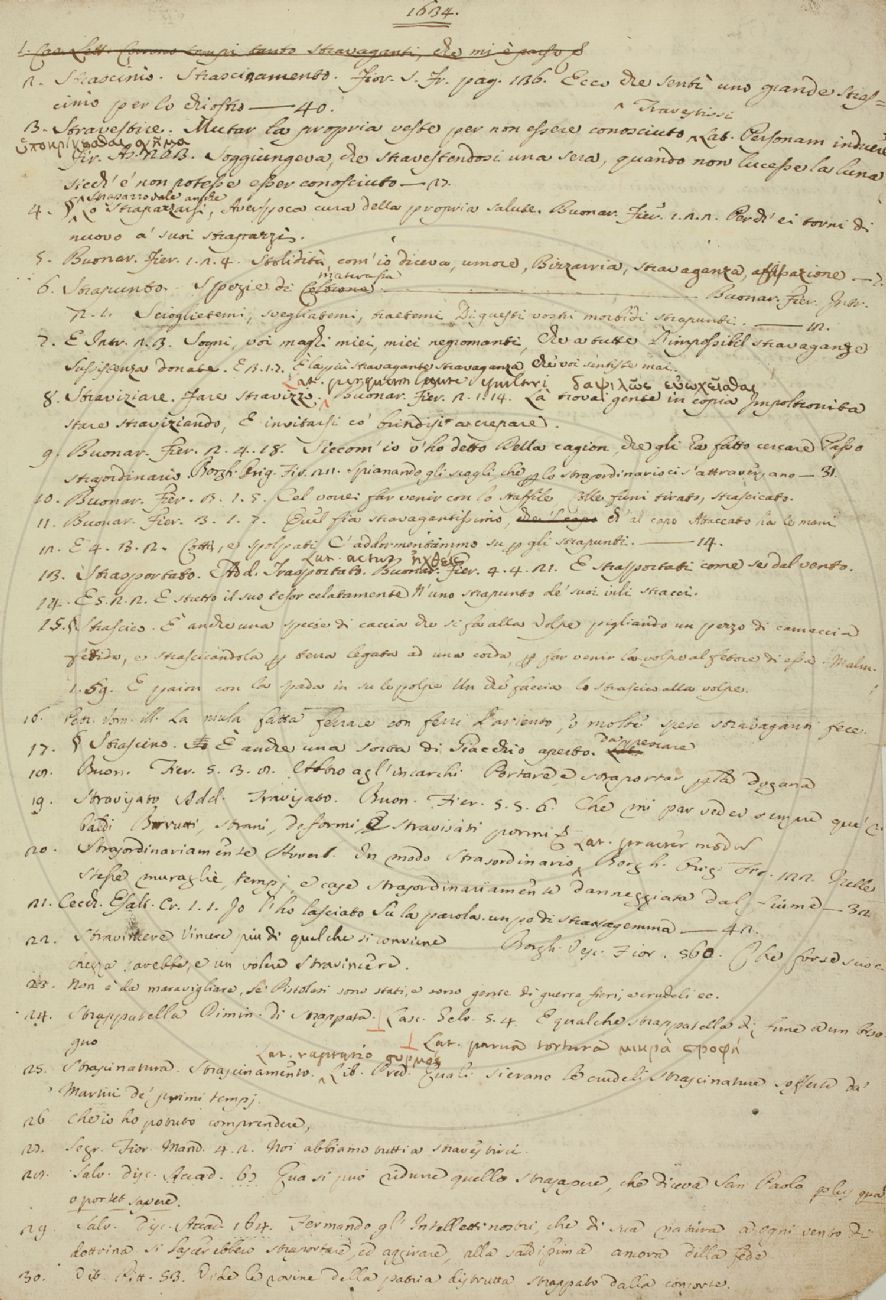 1634.
1. Cas. Lett. tempi tanto stravaganti, che mi è parso
2. Strascinìo. Strascinamento. Fior. S. Fr. pag. 136. Ecco che sentì uno grande stras=
cinìo per lo chiostro — 40.
Travestirsi
3. Stravestire. Mutar la propria veste per non essere conosciuto Lat. Personam induere
ὑποκρίνασθαι σχῆμα
Fir. As. 202. Soggiungeva, che stravestendosi una sera, quando non lucesse la luna
sicchè e' non potesse esser conosciuto — 27.
Strapazzo vale anche
4. § Lo Strapazzarsi, Aver poca cura della propria salute. Buonar. Fier. 1. 2. 2. Perch' ei torni di
nuovo a' suoi strapazzi.
5. Buonar. Fier. 1. 2. 4. Stolidità, com' io diceva, umore, Bizzarria, stravaganza, — 7.
materassa
6. Strapunto. Spezie di — Buonar. Fier. Intr.
2. 1. Scioglietemi, svegliatemi, traetemi Di questi vostri morbidi strapunti. — 12.
7. E Intr. 2. 3. Sogni, voi maghi miei, miei negromanti, Che a tutte l'impossibil stravaganze
Sussistenza donate. E 2. 1. 7. E la più stravagante stravaganza che voi sentiste mai.
Lat. δαψιλῶς εὐωχεῖσθαι
8. Straviziare. Fare stravizzo. Buonar. Fier. 2. 1. 14. La trovai gente in copia Impoltronita
stare straviziando, E invitarsi co' brindisi a crepare.
9. Buonar. Fier. 2. 4. 18. Siccom' io v'ho detto Bella cagion, che gli ha fatto cercare Passo
strasordinario Borgh. Orig. Fir. 211. Spianando gli scogli, che per lo strasordinario ci s'attraversano — 31.
10. Buonar. Fier. 3. 1. 5. Col vorrei far venir con lo staffile, Colle funi tirato, strascicato.
11. Buonar. Fier. 3. 1. 7. Quel fia stravagantissimo, ch' al capo Attaccato ha le mani
12. E 4. 3. 2. Cotti, e spolpati C'addormentammo su per gli strapunti. — 14.
Lat. actus ἠχθείς
13. Strasportato. Add. Trasportato. Buonar. Fier. 4. 4. 21. E strasportati come se' dal vento.
14. E 5. 2. 2. E stretto il suo tesor celatamente N'uno strapunto de' suoi vili stracci.
15. § Strascico. È anche una specie di caccia che si fa alla volpe pigliando un pezzo di carnaccia
fetida, e strascicandola per terra legata ad una corda, per far venir la volpe al fetore di essa. Malm.
1. 59. E paion con la spada in su le polpe Un che faccia lo strascico alla volpe.
16. La mula fatta ferrare con ferri d'ariento, e molte spese stravaganti fece.
da pescare
17. § Strascino. È anche una sorta di Giacchio aperto.
18. Buon. Fier. 5. 3. 8. Portare, e straportar per la Dogana
19. Stravisato Add. Travisato. Buon. Fier. 5. 5. 6. Che mi par veder sempre que'
baldi Brutti, strani, deformi E stravisati pormi
Lat. praeter modum
20. Strasordinariamente Avverb. In modo strasordinario. Borgh. Orig. Fir. 122. Quelle
stesse muraglie, tempj, e case strasordinariamente danneggiata dal fiume — 32.
21. Cecch. Esalt. Cr. 1. 1. Io l'ho lasciato Su la parola un po di stratagemma — 42.
22. Stravincere Vincere più di quel che si conviene Borgh. Vesc. Fior. 560. Che forse scioc
chezza sarebbe, e un volere stravincere.
23. Non è da maravigliare, se Pistolesi sono stati, e sono gente di guerra fieri, e crudeli ec.
24. Strappatella Dimin. di Strappata. Lasc. Gelo. 5. 4. E qualche strappatella di fune a un biso
gno
Lat. parva tortura μικρὰ στροφή
Lat. raptatio συρμός
25. Strascinatura. Strascinamento. Lib. Pred. Quali sierano le crudeli strascinature sofferte da'
Martiri de' primi tempj.
26. Che io ho potuto comprendere,
27. Segr. Fior. Mand. 4. 2. Noi abbiamo tutti a stravestirci.
28. Salv. disc. Accad. 67. Qua si può ridurre quello strasapere, che diceva San Paolo plus quam
oportet sapere.
29. Salv. Disc. Accad. 164. Fermando gl' Intelletti nostri, che di sua natura ad ogni vento di
dottrina si lascerebbero straportare, ed aggirare, alla saldissima ancora della fede
30. Dit. 53. Vide le rovine della patria distrutta strappato dalla consorte.